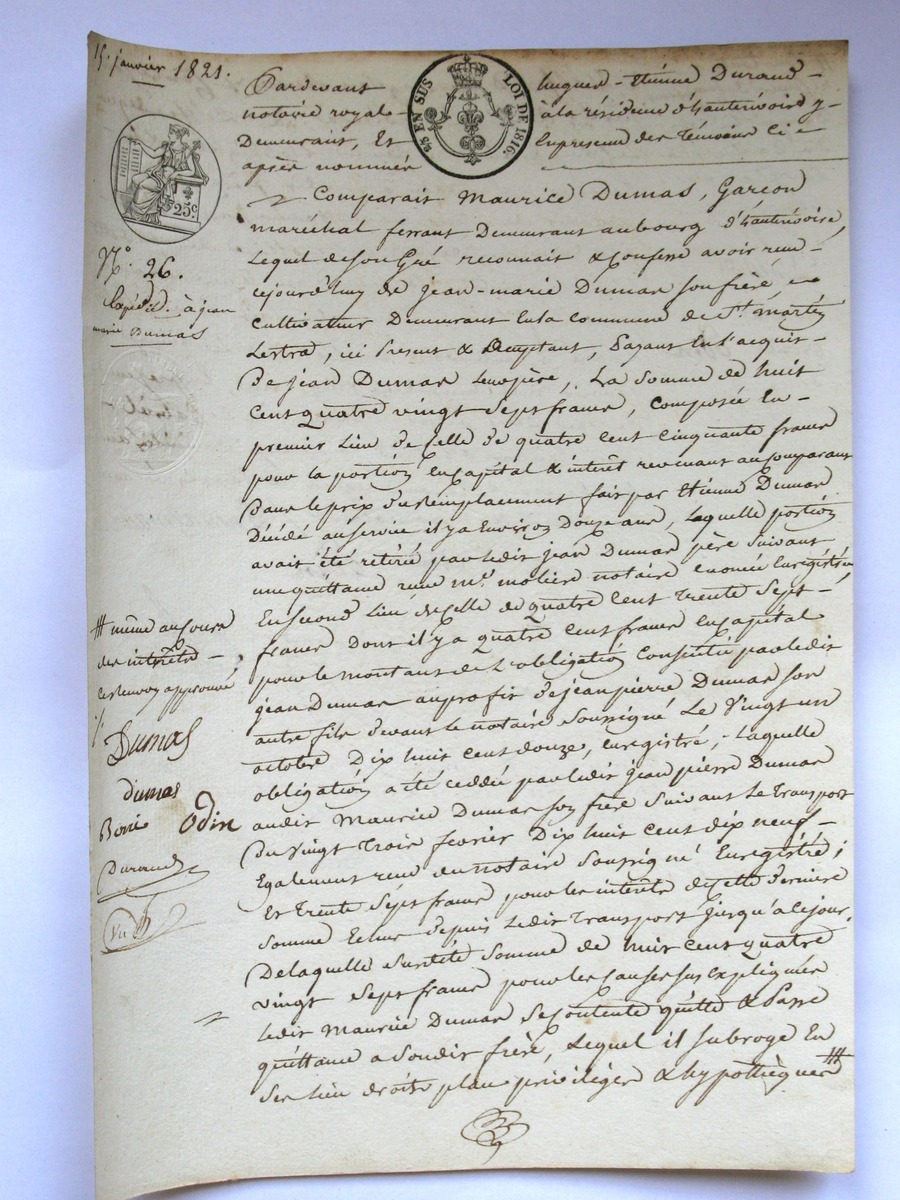 15. janvier 1821.
2/5 EN SUS LOI DE 1816.
25c.
Pardevant hugues - Etienne Durand -
notaire royal - à la résidence d'hauterivoire y
Demeurant, Et En presence des Témoins ci -
après nommés
Comparait Maurice Dumas, Garcon
maréchal ferrant Demeurant au bourg d'hauterivoire,
Lequel de son Gré reconnait & Confesse avoir recu -
cejourd'huy de jean-marie Dumas son frère,
Cultivateur Demeurant En la commune de St. martin
Lestra, ici Present & acceptant, Payant En l'acquit -
De jean Dumas Leur père, La Somme de huit
Cent quatre vingt Sept francs, Composée En -
premier Lieu de Celle de quatre cent Cinquante francs
pour la portion En Capital & intérêt revenant au Comparant
Dans le prix du Remplacement fait par Etienne Dumas
Décédé au service il y a Environ Douze ans, Laquelle portion
avait été retirée par ledit jean Dumas père Suivant
une quittance recue me. molière notaire Enregistrée
En second Lieu de Celle de quatre Cent Trente Sept -
francs Dont il y a quatre Cent francs En Capital
pour le montant de L'obligation Consentie par ledit
jean Dumas au profit de jean pierre Dumas son
autre fils devant le notaire Soussigné Le Vingt un
octobre Dix huit Cent douze, Enregistré, Laquelle
obligation a été cédée par ledit jean pierre Dumas
audit Maurice Dumas son frère Suivant Le Transport
Du Vingt Trois fevrier Dix huit Cent dix neuf -
Egalement recu du notaire Soussigné Enregistré;
Et Trente Sept francs pour les intérêts de Celle dernière
Somme Echus depuis Ledit Transport jusqu'à Ce jour.
De laquelle Susdite Somme de huit Cent quatre
vingt Sept francs pour les Causes sus Expliquées
ledit Maurice Dumas Se Contente quitte & Passe
quittance a Sondit frère, Lequel il subroge En
Ses Lieu droits place privilèges & hypothèques #
N°. 26.
Expédié. à jean
marie Dumas
# même au Cours
des intérêts -
Ce renvoy approuvé
Dumas
dumas
Odin
Durand